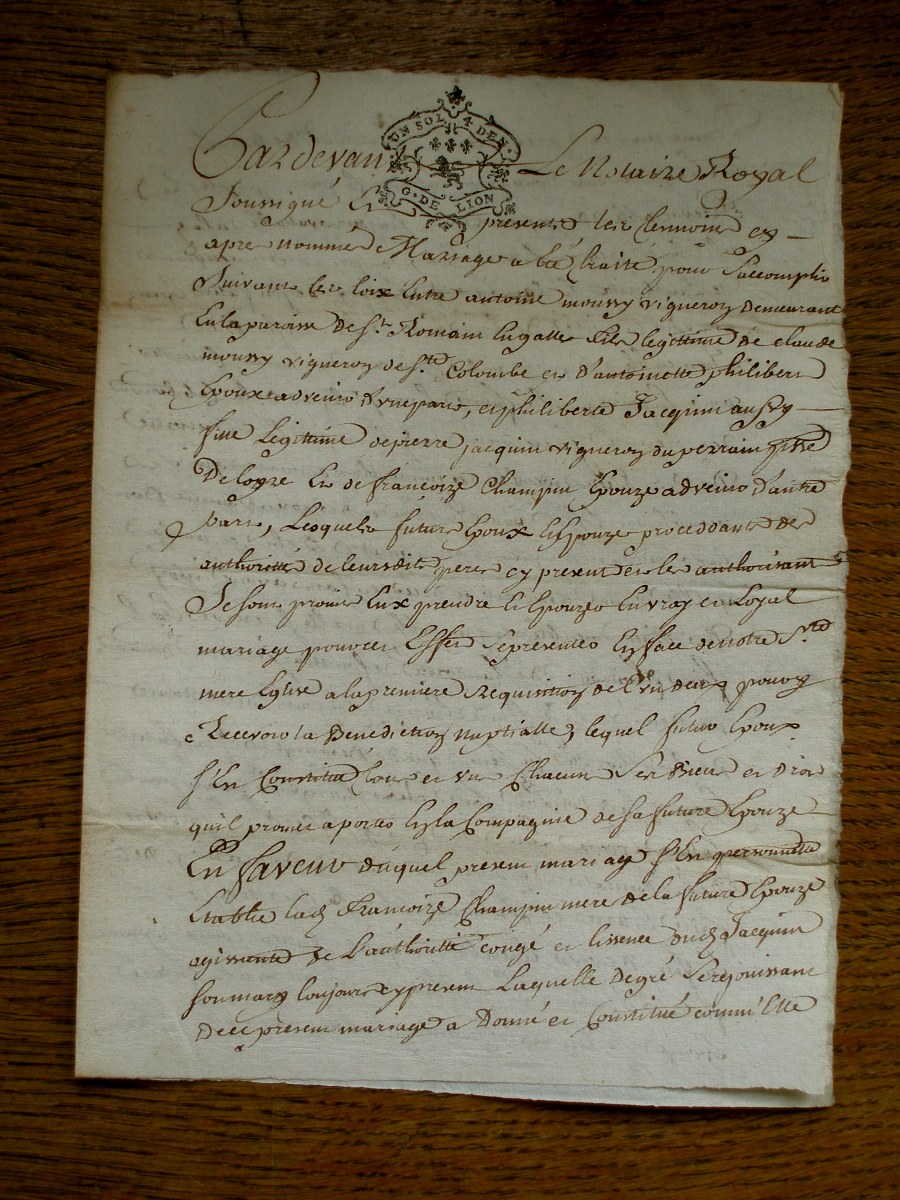 UN SOL 4 DEN.
G. DE LION
Pardevant Le Notaire Royal
Soussigné Et presents les temoins cy
apres nommé Mariage a été traité pour S'accomplir
Suivant les loix Entre antoine moussy vigneron demeurant
En la paroisse de St. Romain Engalle fils legittime de claude
moussy vigneron de Ste Colombe et d'antoinette philibert
Epoux advenir d'une part, et philiberte Jacquin aussy
fille legittime de pierre jacquin vigneron du perrain
De loyre Et de francoize Champin Epouze advenir d'autre
part, Lesquels futurs Epoux Et Epouze proceddants de
authoritté de leursdits peres cy present et les authorisant
Se sont promis Eux prendre Et Epouzer En vray et Loyal
mariage pour cet Effet Se presenter En face de notre Ste
mere Eglise a la premiere Requisition de l'un deux pour y
Recevoir la Benediction Nuptialle, lequel futur Epoux
S'En Constitué tous et un Chacun Ses Biens et Droits
qu'il promet aporter En la Compagnie de Sa future Epouze
En faveur duquel present mariage S'En personnelle
Etablie lad. Francoize Champin mere de la future Epouze
agissante de L'authoritté congé et lissence dud. Jacquin
Son mary toujours cy present Laquelle de gré Se rejouissant
De ce present mariage a Donné et Constitué comm'Elle